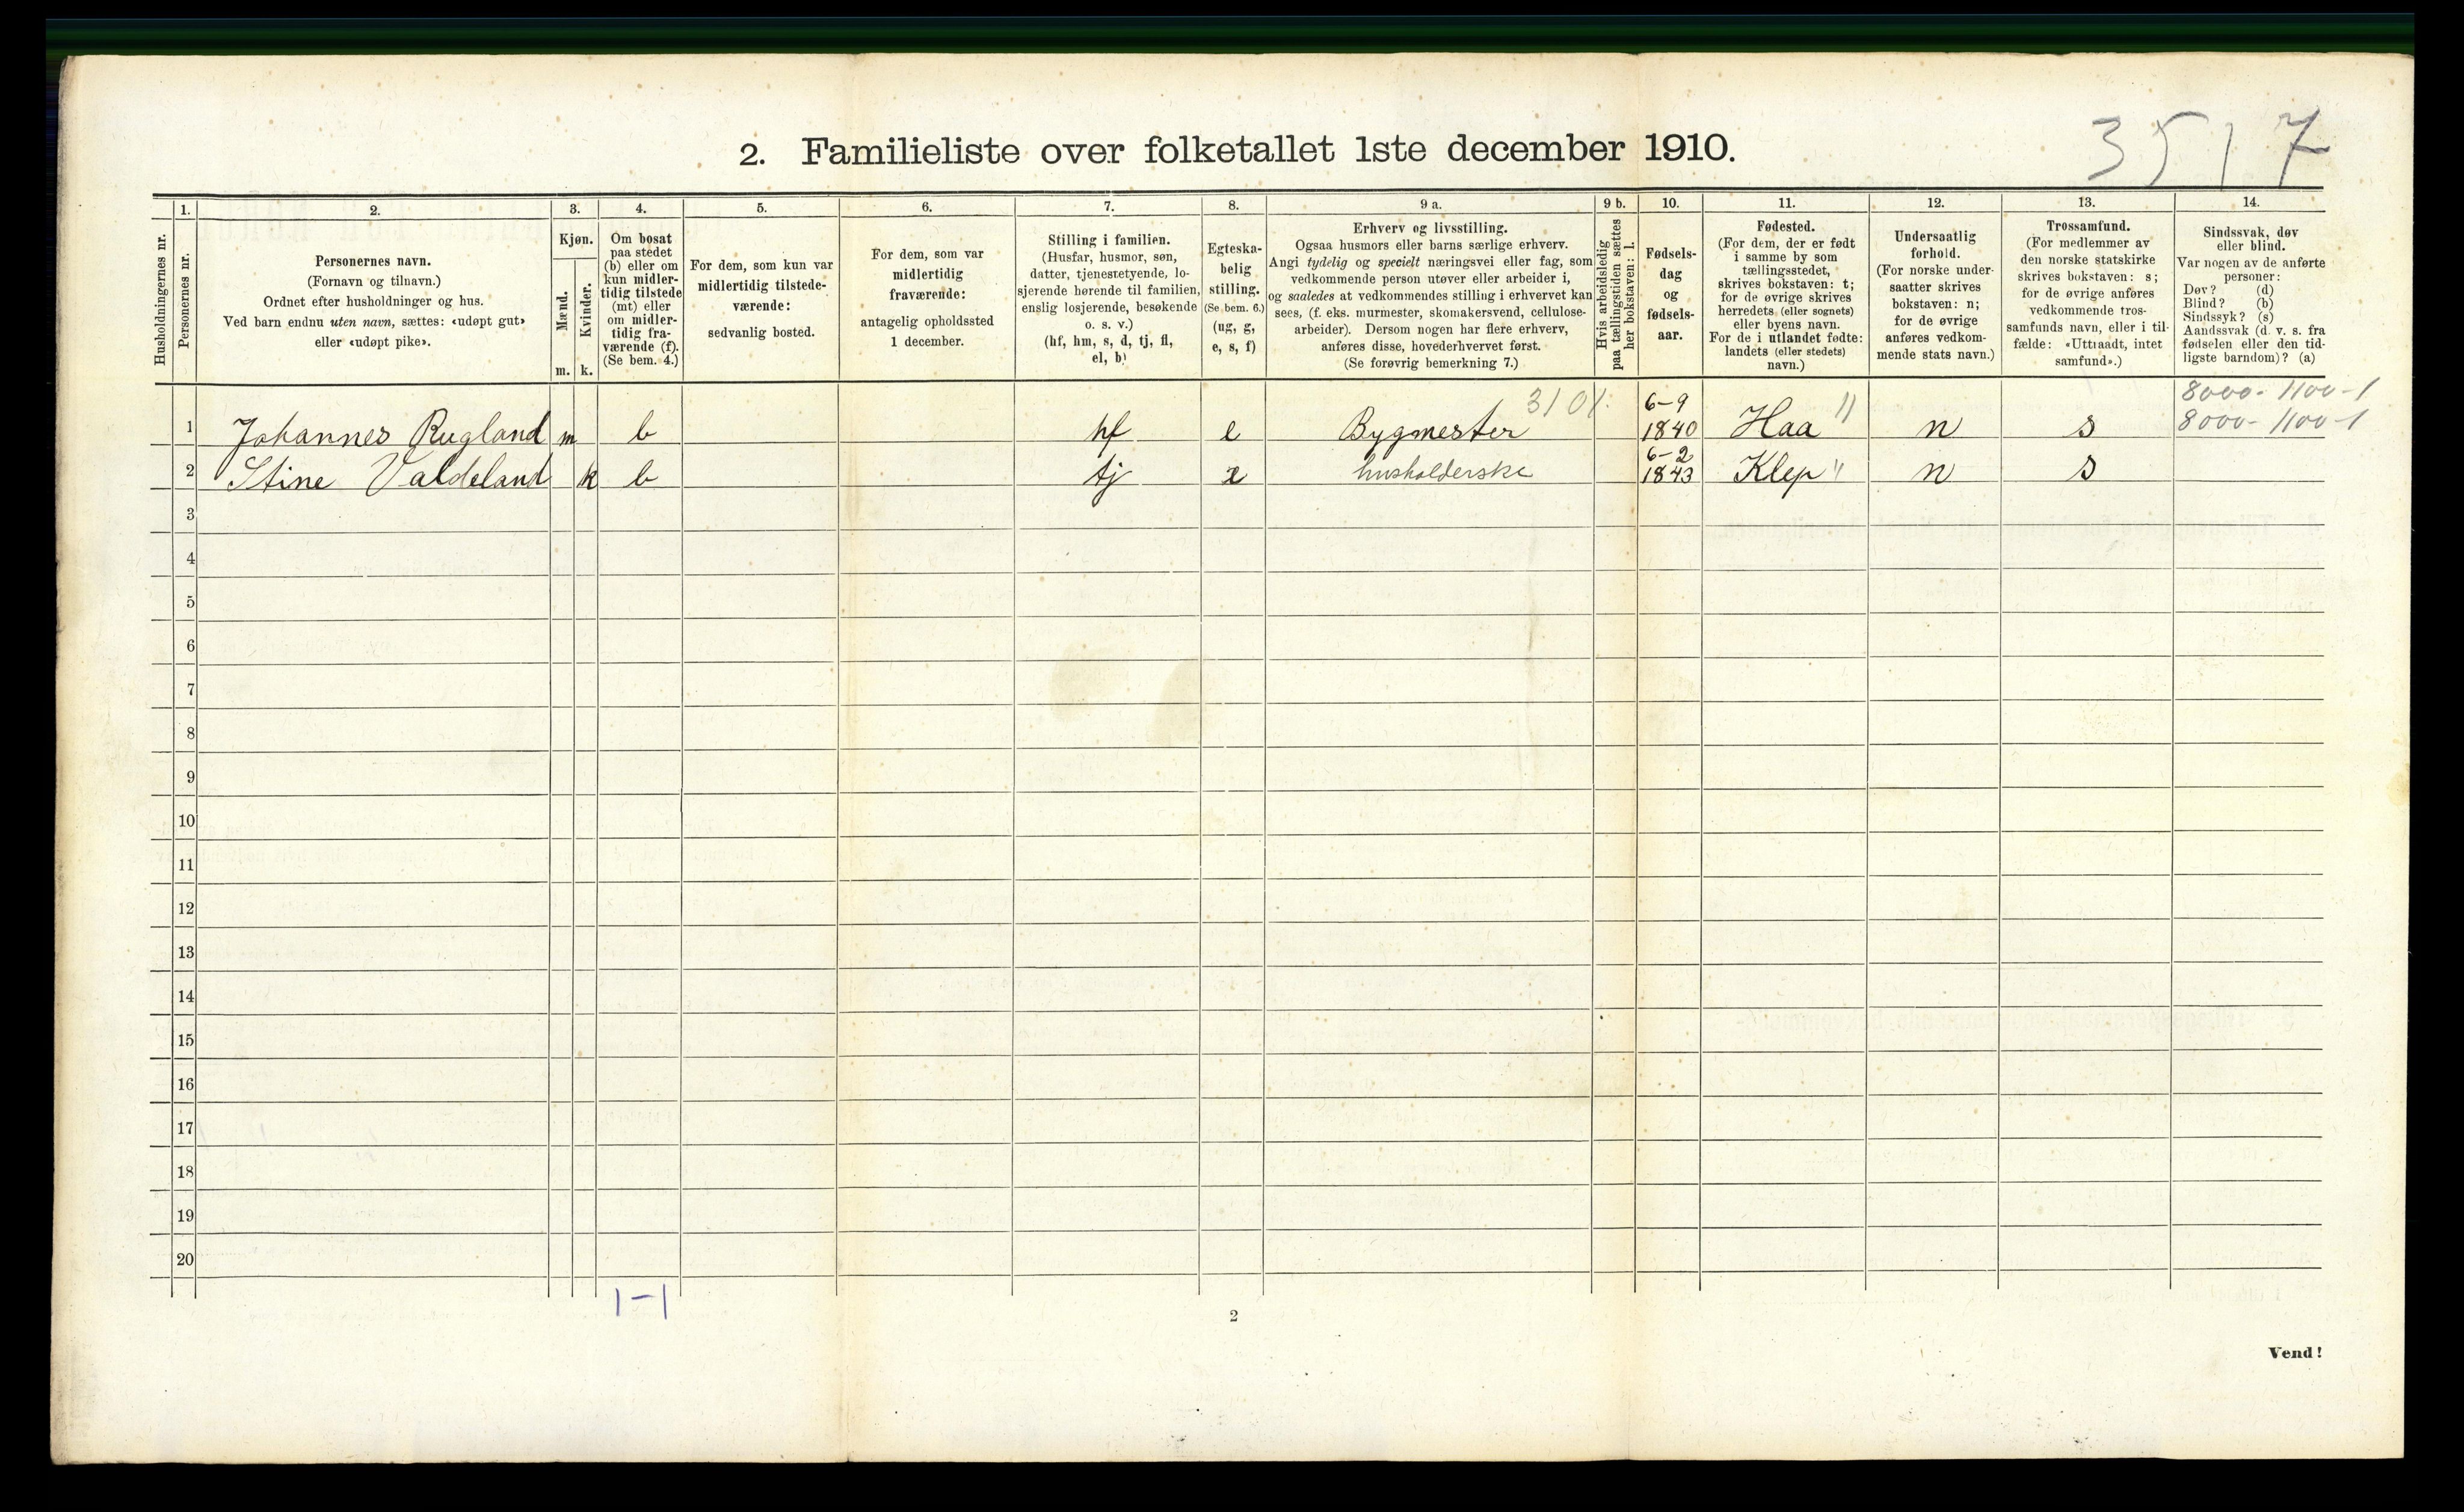 3517
2. Familieliste over folketallet 1ste december 1910.
1. 2. 3. 4. 5. 6. 7. 8. 9 a. 9 b. 10. 11. 12. 13. 14.
Husholdningernes nr.
Personernes nr.
Personernes navn.
(Fornavn og tilnavn.)
Ordnet efter husholdninger og hus.
Ved barn endnu uten navn, sættes: «udøpt gut»
eller «udøpt pike».
Kjøn.
Mænd.
m.
Kvinder.
k.
Om bosat
paa stedet
(b) eller om
kun midler-
tidig tilstede
(mt) eller
om midler-
tidig fra-
værende (f).
(Se bem. 4.)
For dem, som kun var
midlertidig tilstede-
værende:
sedvanlig bosted.
For dem, som var
midlertidig
fraværende:
antagelig opholdssted
1 december.
Stilling i familien.
(Husfar, husmor, søn,
datter, tjenestetyende, lo-
sjerende hørende til familien,
enslig losjerende, besøkende
o. s. v.)
(hf, hm, s, d, tj, fl,
el, b)
Egteska-
belig
stilling.
(Se bem. 6.)
(ug, g,
e, s, f)
Erhverv og livsstilling.
Ogsaa husmors eller barns særlige erhverv.
Angi tydelig og specielt næringsvei eller fag, som
vedkommende person utøver eller arbeider i,
og saaledes at vedkommendes stilling i erhvervet kan
sees, (f. eks. murmester, skomakersvend, cellulose-
arbeider). Dersom nogen har flere erhverv,
anføres disse, hovederhvervet først.
(Se forøvrig bemerkning 7.)
Hvis arbeidsledig
paa tællingstiden sættes
her bokstaven: l.
Fødsels-
dag
og
fødsels-
aar.
Fødested.
(For dem, der er født
i samme by som
tællingsstedet,
skrives bokstaven: t;
for de øvrige skrives
herredets (eller sognets)
eller byens navn.
For de i utlandet fødte:
landets (eller stedets)
navn.)
Undersaatlig
forhold.
(For norske under-
saatter skrives
bokstaven: n;
for de øvrige
anføres vedkom-
mende stats navn.)
Trossamfund.
(For medlemmer av
den norske statskirke
skrives bokstaven: s;
for de øvrige anføres
vedkommende tros-
samfunds navn, eller i til-
fælde: «Uttraadt, intet
samfund».)
Sindssvak, døv
eller blind.
Var nogen av de anførte
personer:
Døv? (d)
Blind? (b)
Sindssyk? (s)
Aandssvak (d. v. s. fra
fødselen eller den tid-
ligste barndom)? (a)
8000- 1100-1
1 Johannes Rugland m b hf e Bygmester 3101. 6-9 1840 Haa " n s 8000- 1100-1
2 Stine Valdeland k b tj e husholderske 6-2 1843 Klep " n s
3
4
5
6
7
8
9
10
11
12
13
14
15
16
17
18
19
20
1-1
2
Vend!